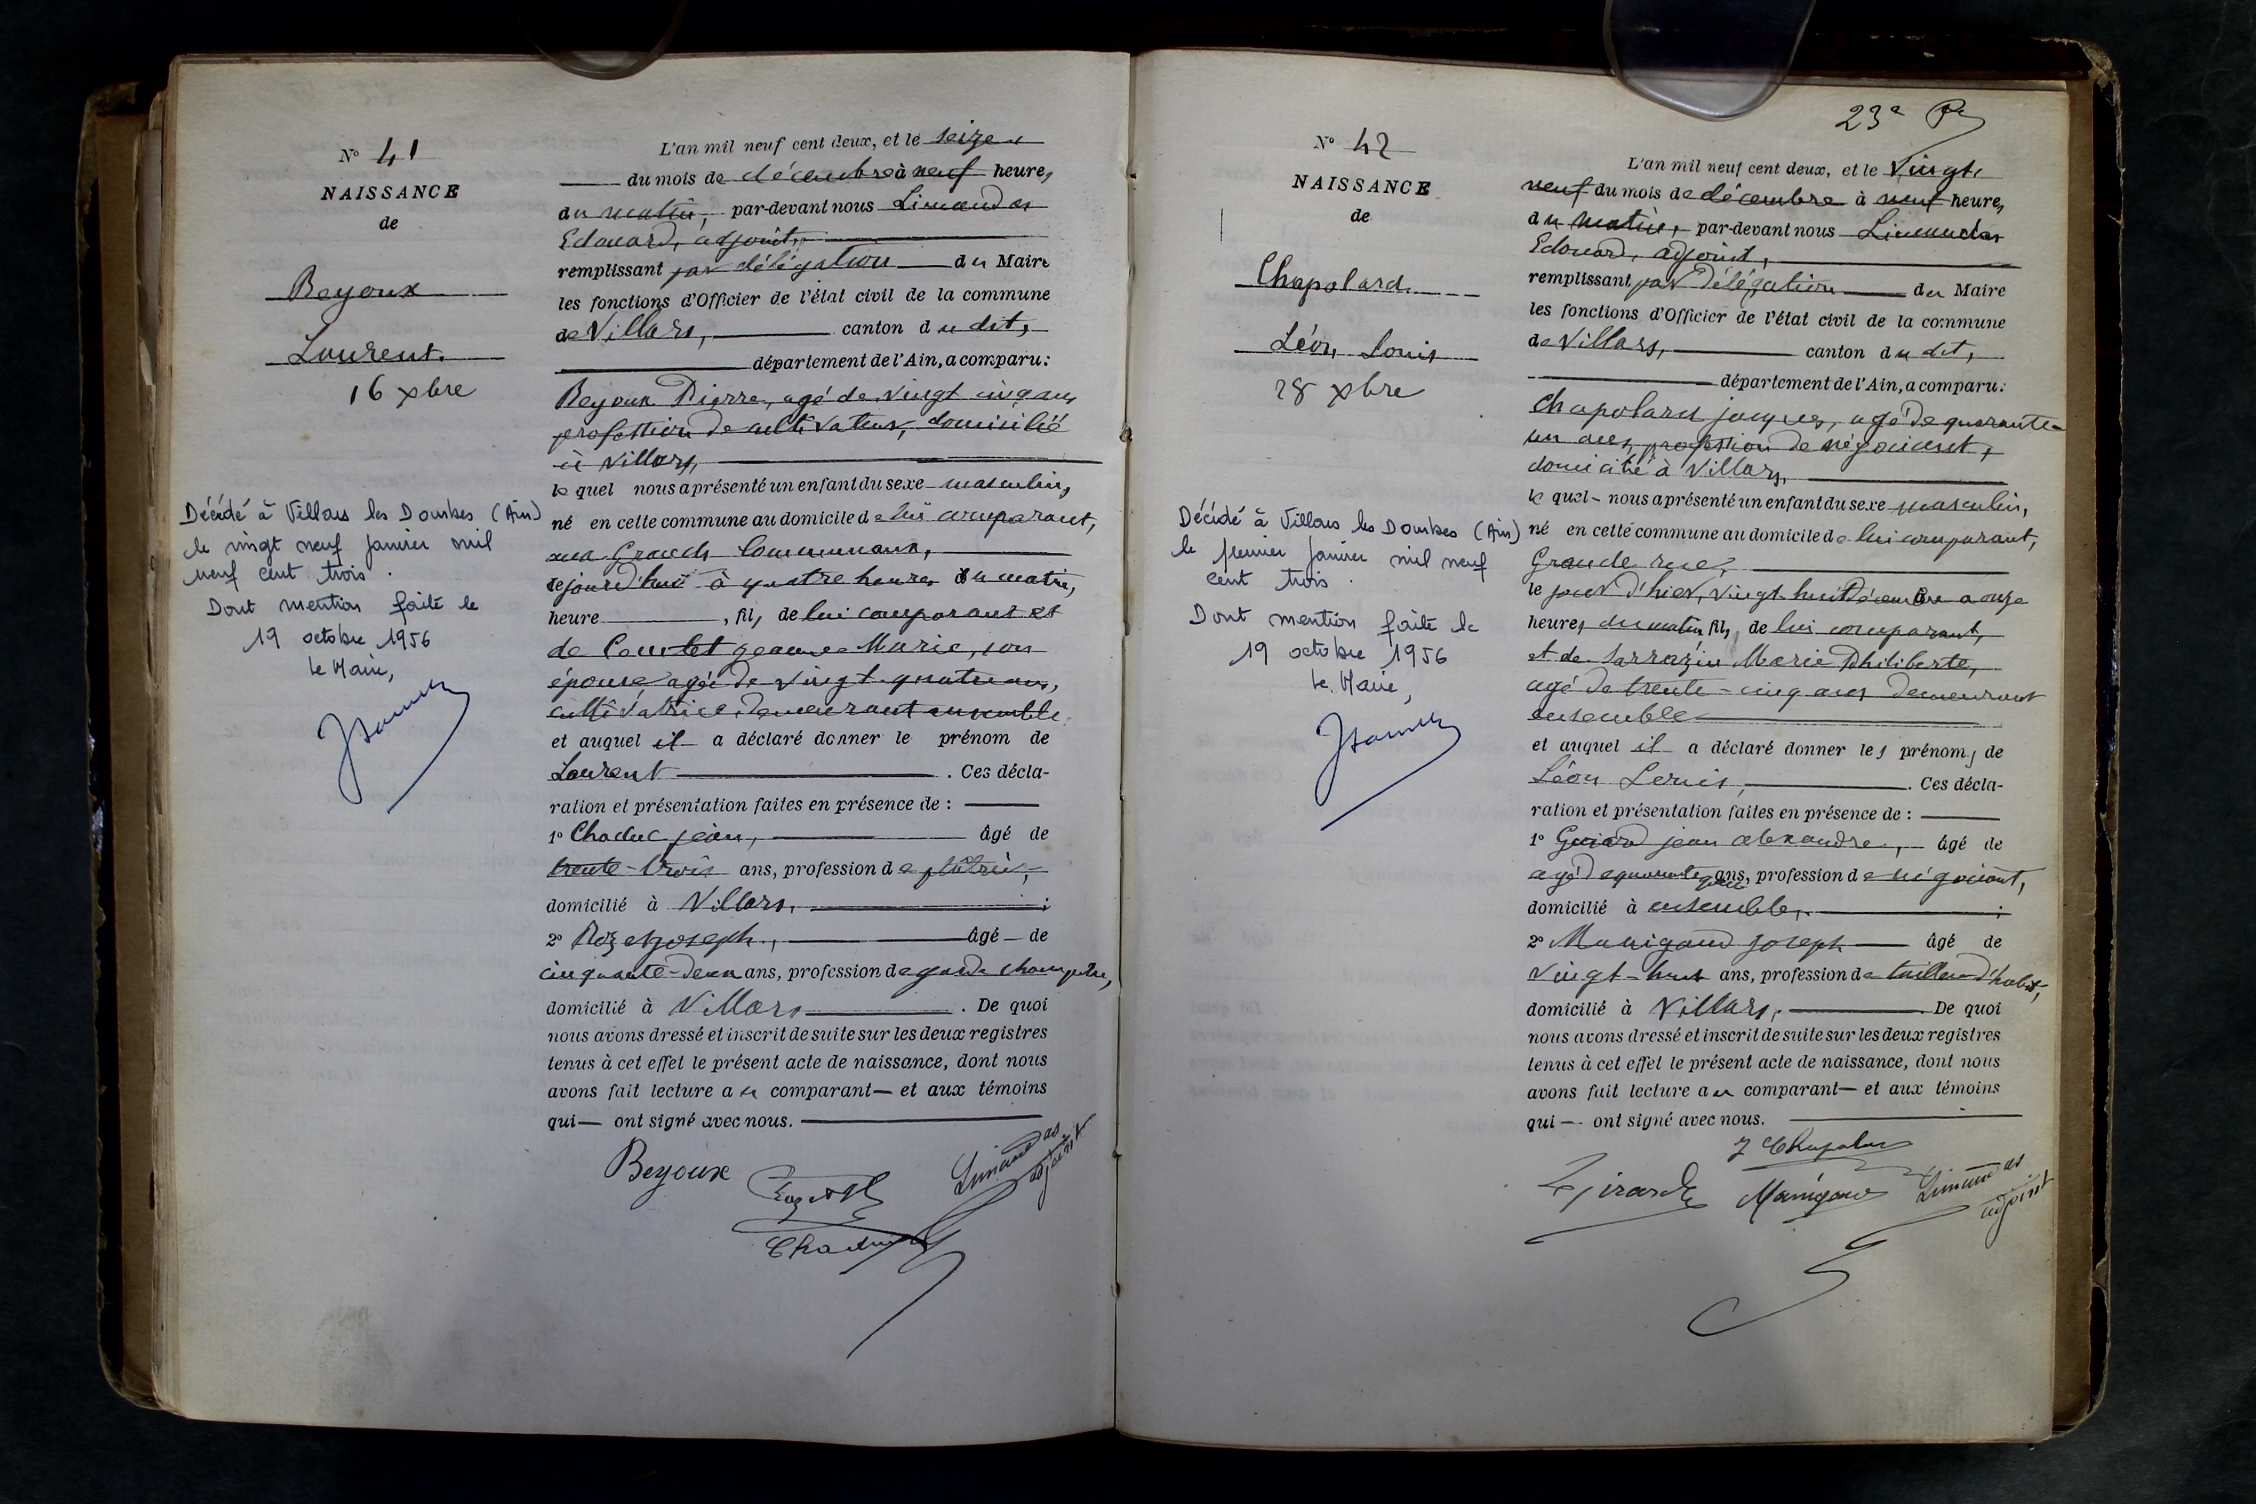 N° 41
NAISSANCE
de
Beyoux
Laurent.
16 xbre
Décédé à Villars les Dombes (Ain)
le vingt neuf janvier mil
neuf cent trois.
Dont mention faite le
19 octobre 1956
Le Maire,
L'an mil neuf cent deux, et le seize
du mois de décembre à neuf heures
du matin, par-devant nous Limandas
Edouard, adjoint,
remplissant par délégation du Maire
les fonctions d'Officier de l'état civil de la commune
de Villars, canton du dit,
département de l'Ain, a comparu:
Beyoux Pierre, agé de vingt cinq ans
profession de cultivateur, domicilié
à Villars,
lequel nous a présenté un enfant du sexe masculin,
né en cette commune au domicile de lui comparant,
aux Grands Communaux,
cejourd'hui à quatre heures du matin,
heure , fils de lui comparant et
de Jeanne Marie, son
épouse agée de vingt-quatre ans,
cultivatrice, demeurant ensemble
et auquel il a déclaré donner le prénom de
Laurent . Ces décla-
ration et présentation faites en présence de :
1° Chaduc jean, âgé de
trente-trois ans, profession de plâtrier,
domicilié à Villars, ;
2° Rozet joseph, âgé de
cinquante-deux ans, profession de garde champêtre,
domicilié à Villars . De quoi
nous avons dressé et inscrit de suite sur les deux registres
tenus à cet effet le présent acte de naissance, dont nous
avons fait lecture au comparant et aux témoins
qui ont signé avec nous.
Beyoux
Limandas
adjoint
Chaduc
23e
N° 42
NAISSANCE
de
Chapolard.
Léon Louis
28 xbre
Décédé à Villars les Dombes (Ain)
le premier janvier mil neuf
cent trois.
Dont mention faite le
19 octobre 1956
Le Maire,
L'an mil neuf cent deux, et le vingt
neuf du mois de décembre à neuf heures
du matin, par-devant nous Limandas
Edouard, adjoint,
remplissant par délégation du Maire
les fonctions d'Officier de l'état civil de la commune
de Villars, canton du dit,
département de l'Ain, a comparu:
Chapolard jacques, agé de quarante-
un ans, profession de négociant,
domicilié à Villars,
lequel nous a présenté un enfant du sexe masculin,
né en cette commune au domicile de lui comparant,
Grande rue,
le jour d'hier, vingt-huit décembre à onze
heures du matin fils de lui comparant,
et de Sarrazin Marie Philiberte,
agé de trente-cinq ans demeurant
ensemble
et auquel il a déclaré donner les prénoms de
Léon Louis, . Ces décla-
ration et présentation faites en présence de :
1° jean alexandre, âgé de
agé de quarante ans, profession de négociant,
domicilié à ensemble, ;
2° Manigand joseph âgé de
vingt-huit ans, profession de tailleur d'habits,
domicilié à Villars, . De quoi
nous avons dressé et inscrit de suite sur les deux registres
tenus à cet effet le présent acte de naissance, dont nous
avons fait lecture au comparant et aux témoins
qui ont signé avec nous.
J Chapolard
Girard
Manigand
Limandas
adjoint